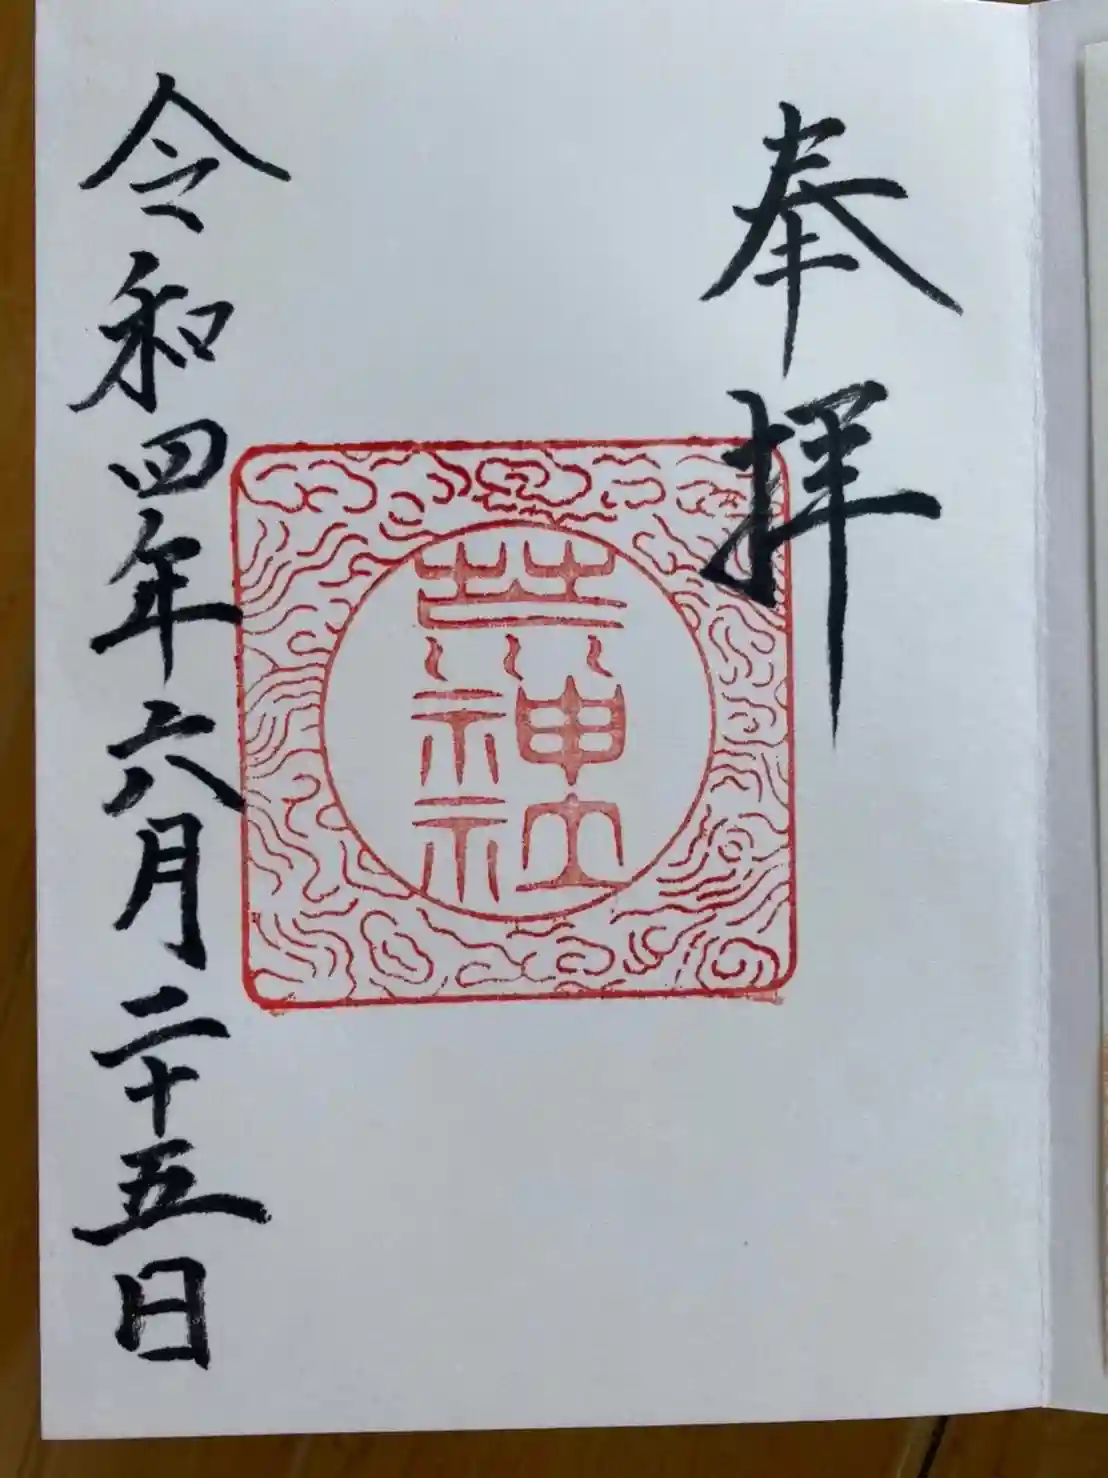 奉拝
荒神社
令和四年六月二十五日